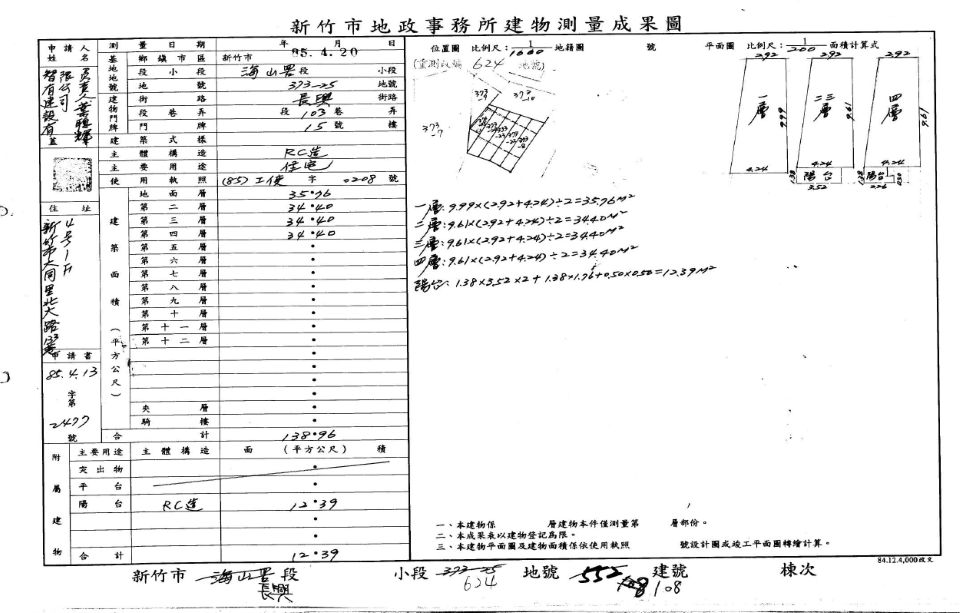 新竹市地政事務所建物測量成果圖
申請人姓名
測量日期 85年4月20日
基地地號 鄉鎮市區 新竹市
段小段 海山罟段 小段
地號 373-25 地號
建物門牌 街路 長興 街路
段巷弄 段 103巷 弄
門牌 15號 樓
建築式樣
主體構造 RC造
主要用途 住宅
使用執照 (85)工使字 0208 號
住址
新竹市大同里北大路
4号1F
申請書
85.4.13
字第
2477
號
建築面積(平方公尺)
地面層 35.96
第二層 34.40
第三層 34.40
第四層 34.40
第五層
第六層
第七層
第八層
第九層
第十層
第十一層
第十二層
夾層
騎樓
合計 138.96
附屬建物
主要用途 主體構造 面(平方公尺)積
突出物
平台
陽台 RC造 12.39
合計 12.39
位置圖 比例尺:1/1000 地籍圖 號
(重測改編 624 地號)
373-9
373-10
373-7
平面圖 比例尺:1/200 面積計算式
2.92 2.92 2.92
一層 9.99
二三層 9.61
四層 9.61
4.24 4.24 4.24
1.38 陽台 3.52
陽台 2.26 0.50
一層:9.99×(2.92+4.24)÷2=35.76M²
二層:9.61×(2.92+4.24)÷2=34.40M²
三層:9.61×(2.92+4.24)÷2=34.40M²
四層:9.61×(2.92+4.24)÷2=34.40M²
陽台:1.38×3.52×2+1.38×1.76+0.50×0.50=12.39M²
一、本建物係 層建物本件僅測量第 層部份。
二、本成果表以建物登記為限。
三、本建物平面圖及建物面積係依使用執照 號設計圖或竣工平面圖轉繪計算。
84.12.4,000改文
新竹市 海山罟段 小段 373-25 地號 552 建號 棟次
長興 624 108